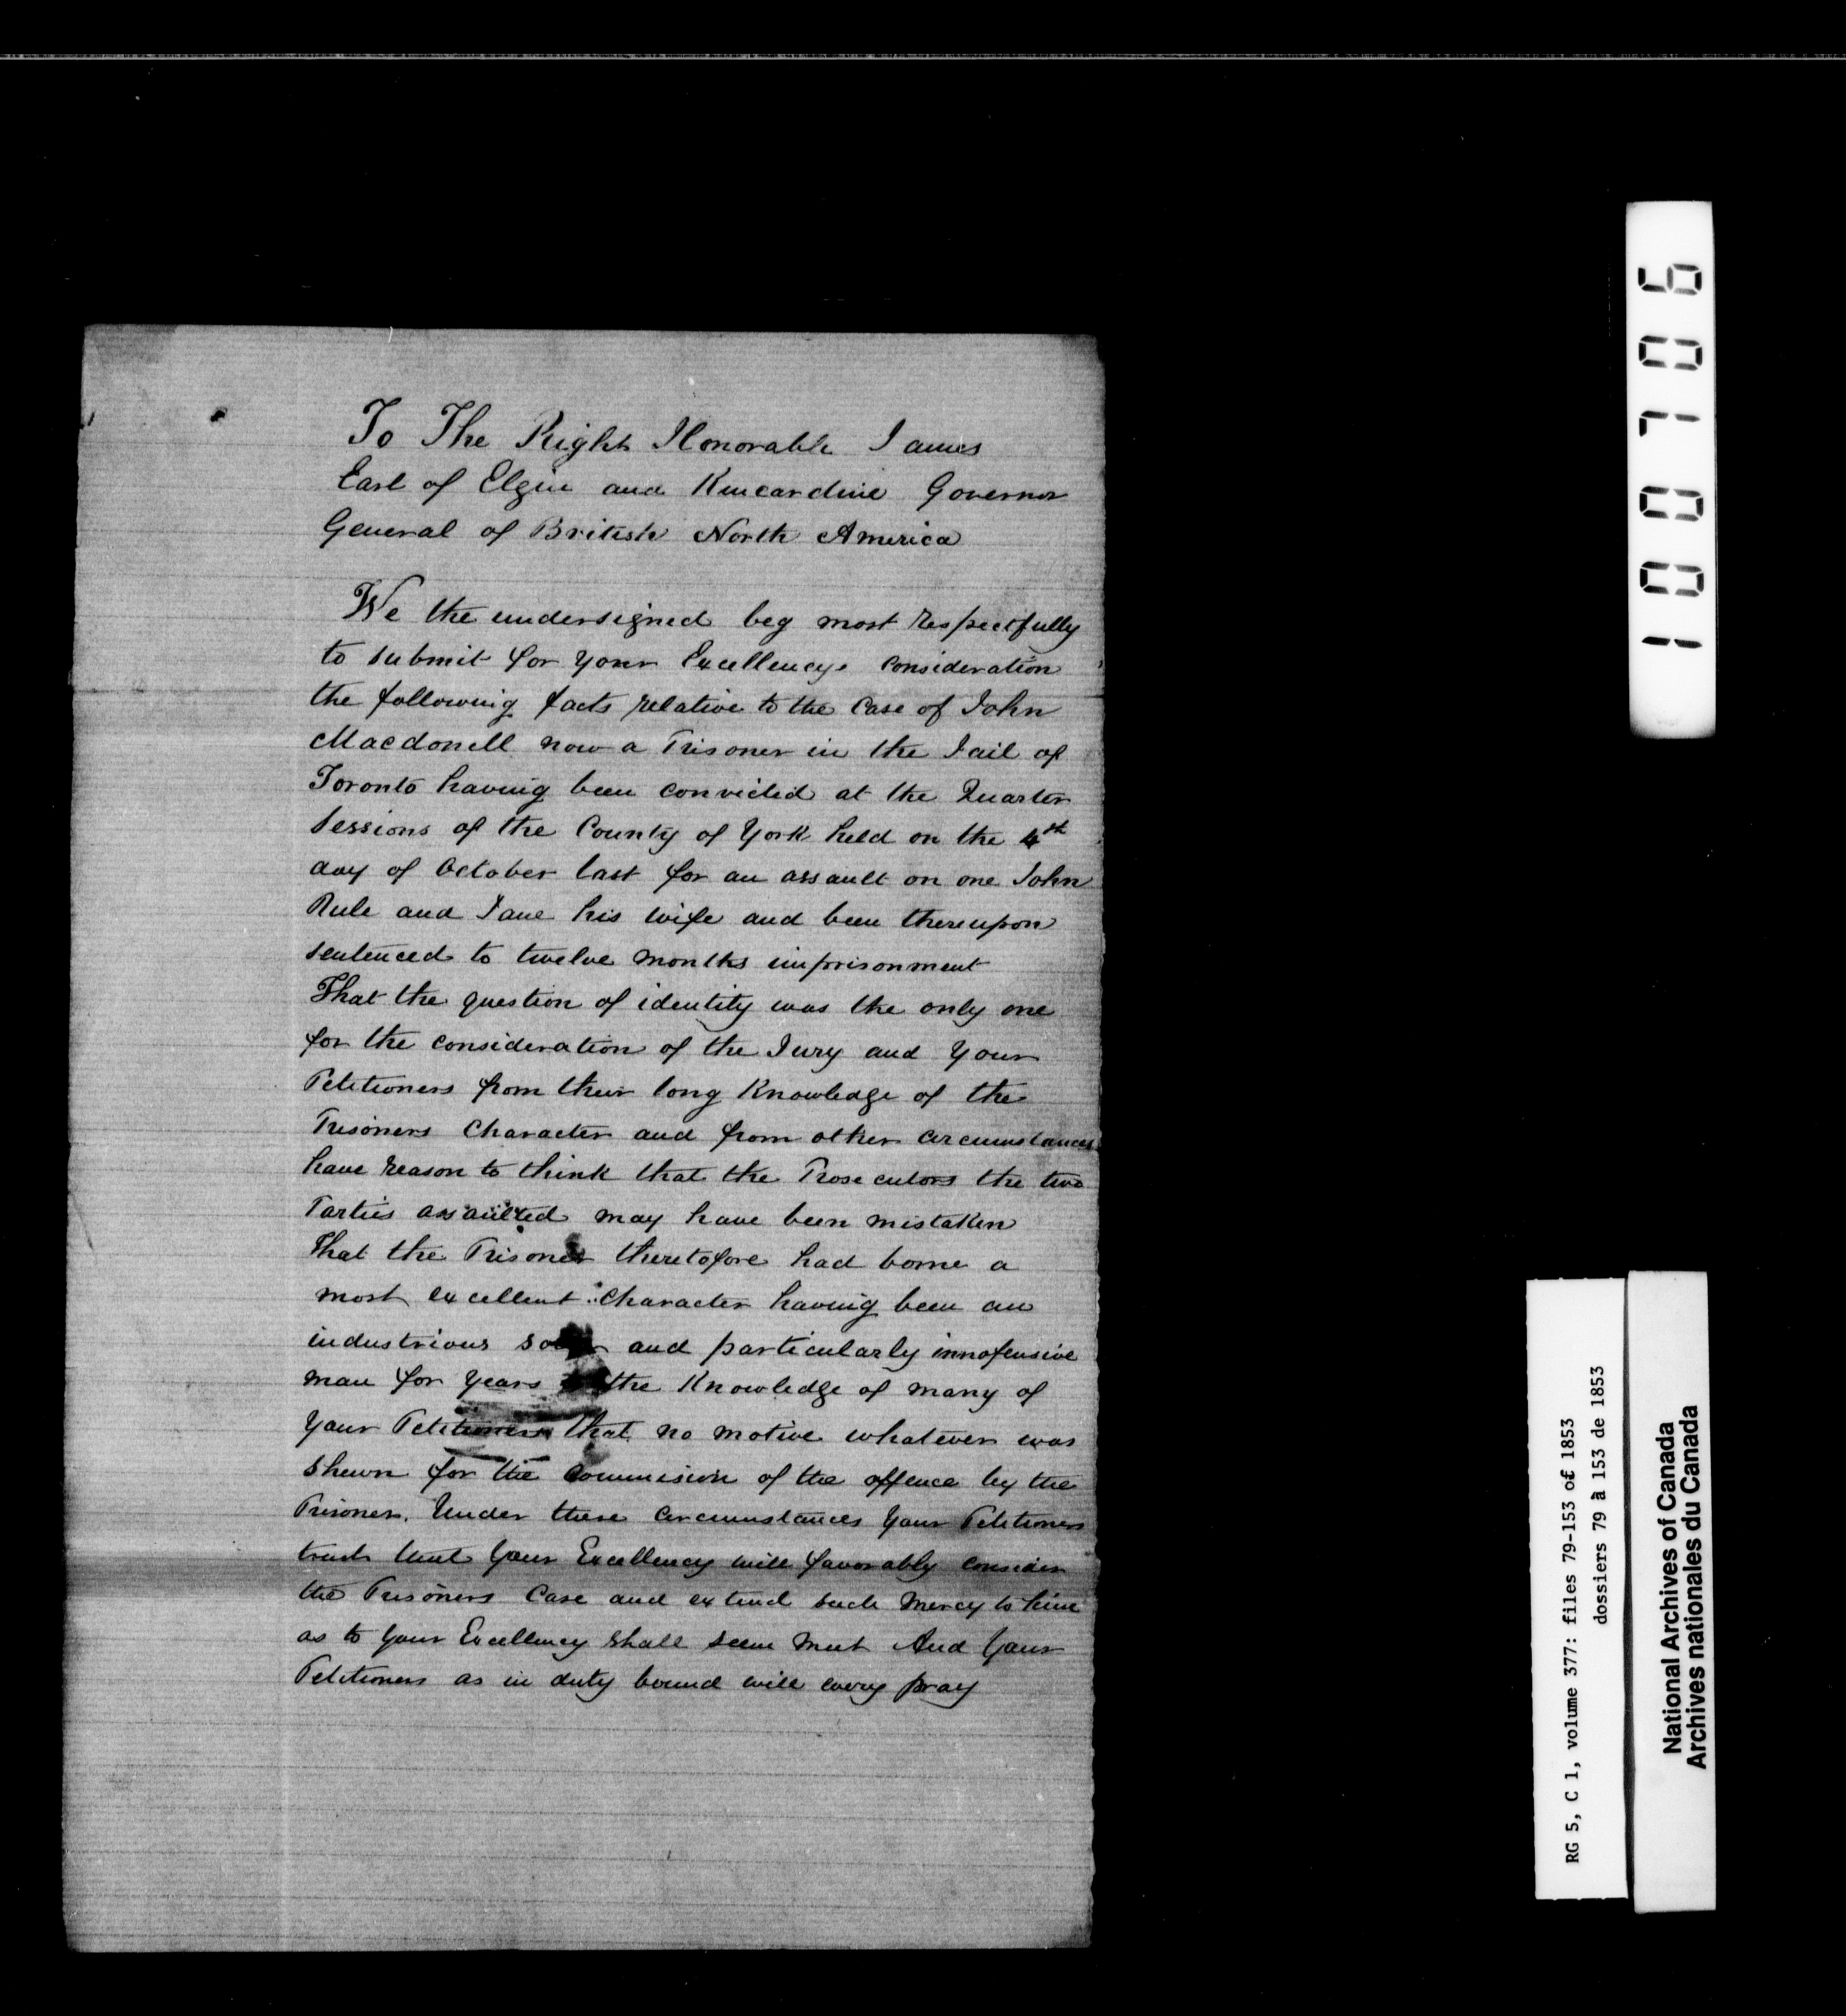 To The Right Honorable James
Earl of Elgin and Kincardine Governor
General of British North America
We the undersigned beg most respectfully
to submit for your Excellencys consideration
the following facts relative to the case of John
Macdonell now a Prisoner in the Jail of
Toronto having been convicted at the Quarter
Sessions of the County of York held on the 4th
day of October last for an assault on one John
Rule and Jane his wife and been thereupon
sentenced to twelve months imprisonment
That the question of identity was the only one
for the consideration of the Jury and Your
Petitioners from their long Knowledge of the
Prisoners Character and from other circumstances
have reason to think that the Prosecutors the two
Parties assaulted may have been mistaken
That the Prisoner theretofore had borne a
most excellent Character having been an
industrious and particularly innofensive
man for years the Knowledge of many of
Your Petitioners that no motive whatever was
shewn for the Commision of the offence by the
Prisoner. Under these Circumstances Your Petitioners
trust that Your Excellency will favorably consider
the Prisoners Case and extend such mercy to him
as to Your Excellency shall seem meet And Your
Petitioners as in duty bound will every pray
100706
RG 5, C 1, volume 377: files 79-153 of 1853
dossiers 79 à 153 de 1853
National Archives of Canada
Archives nationales du Canada